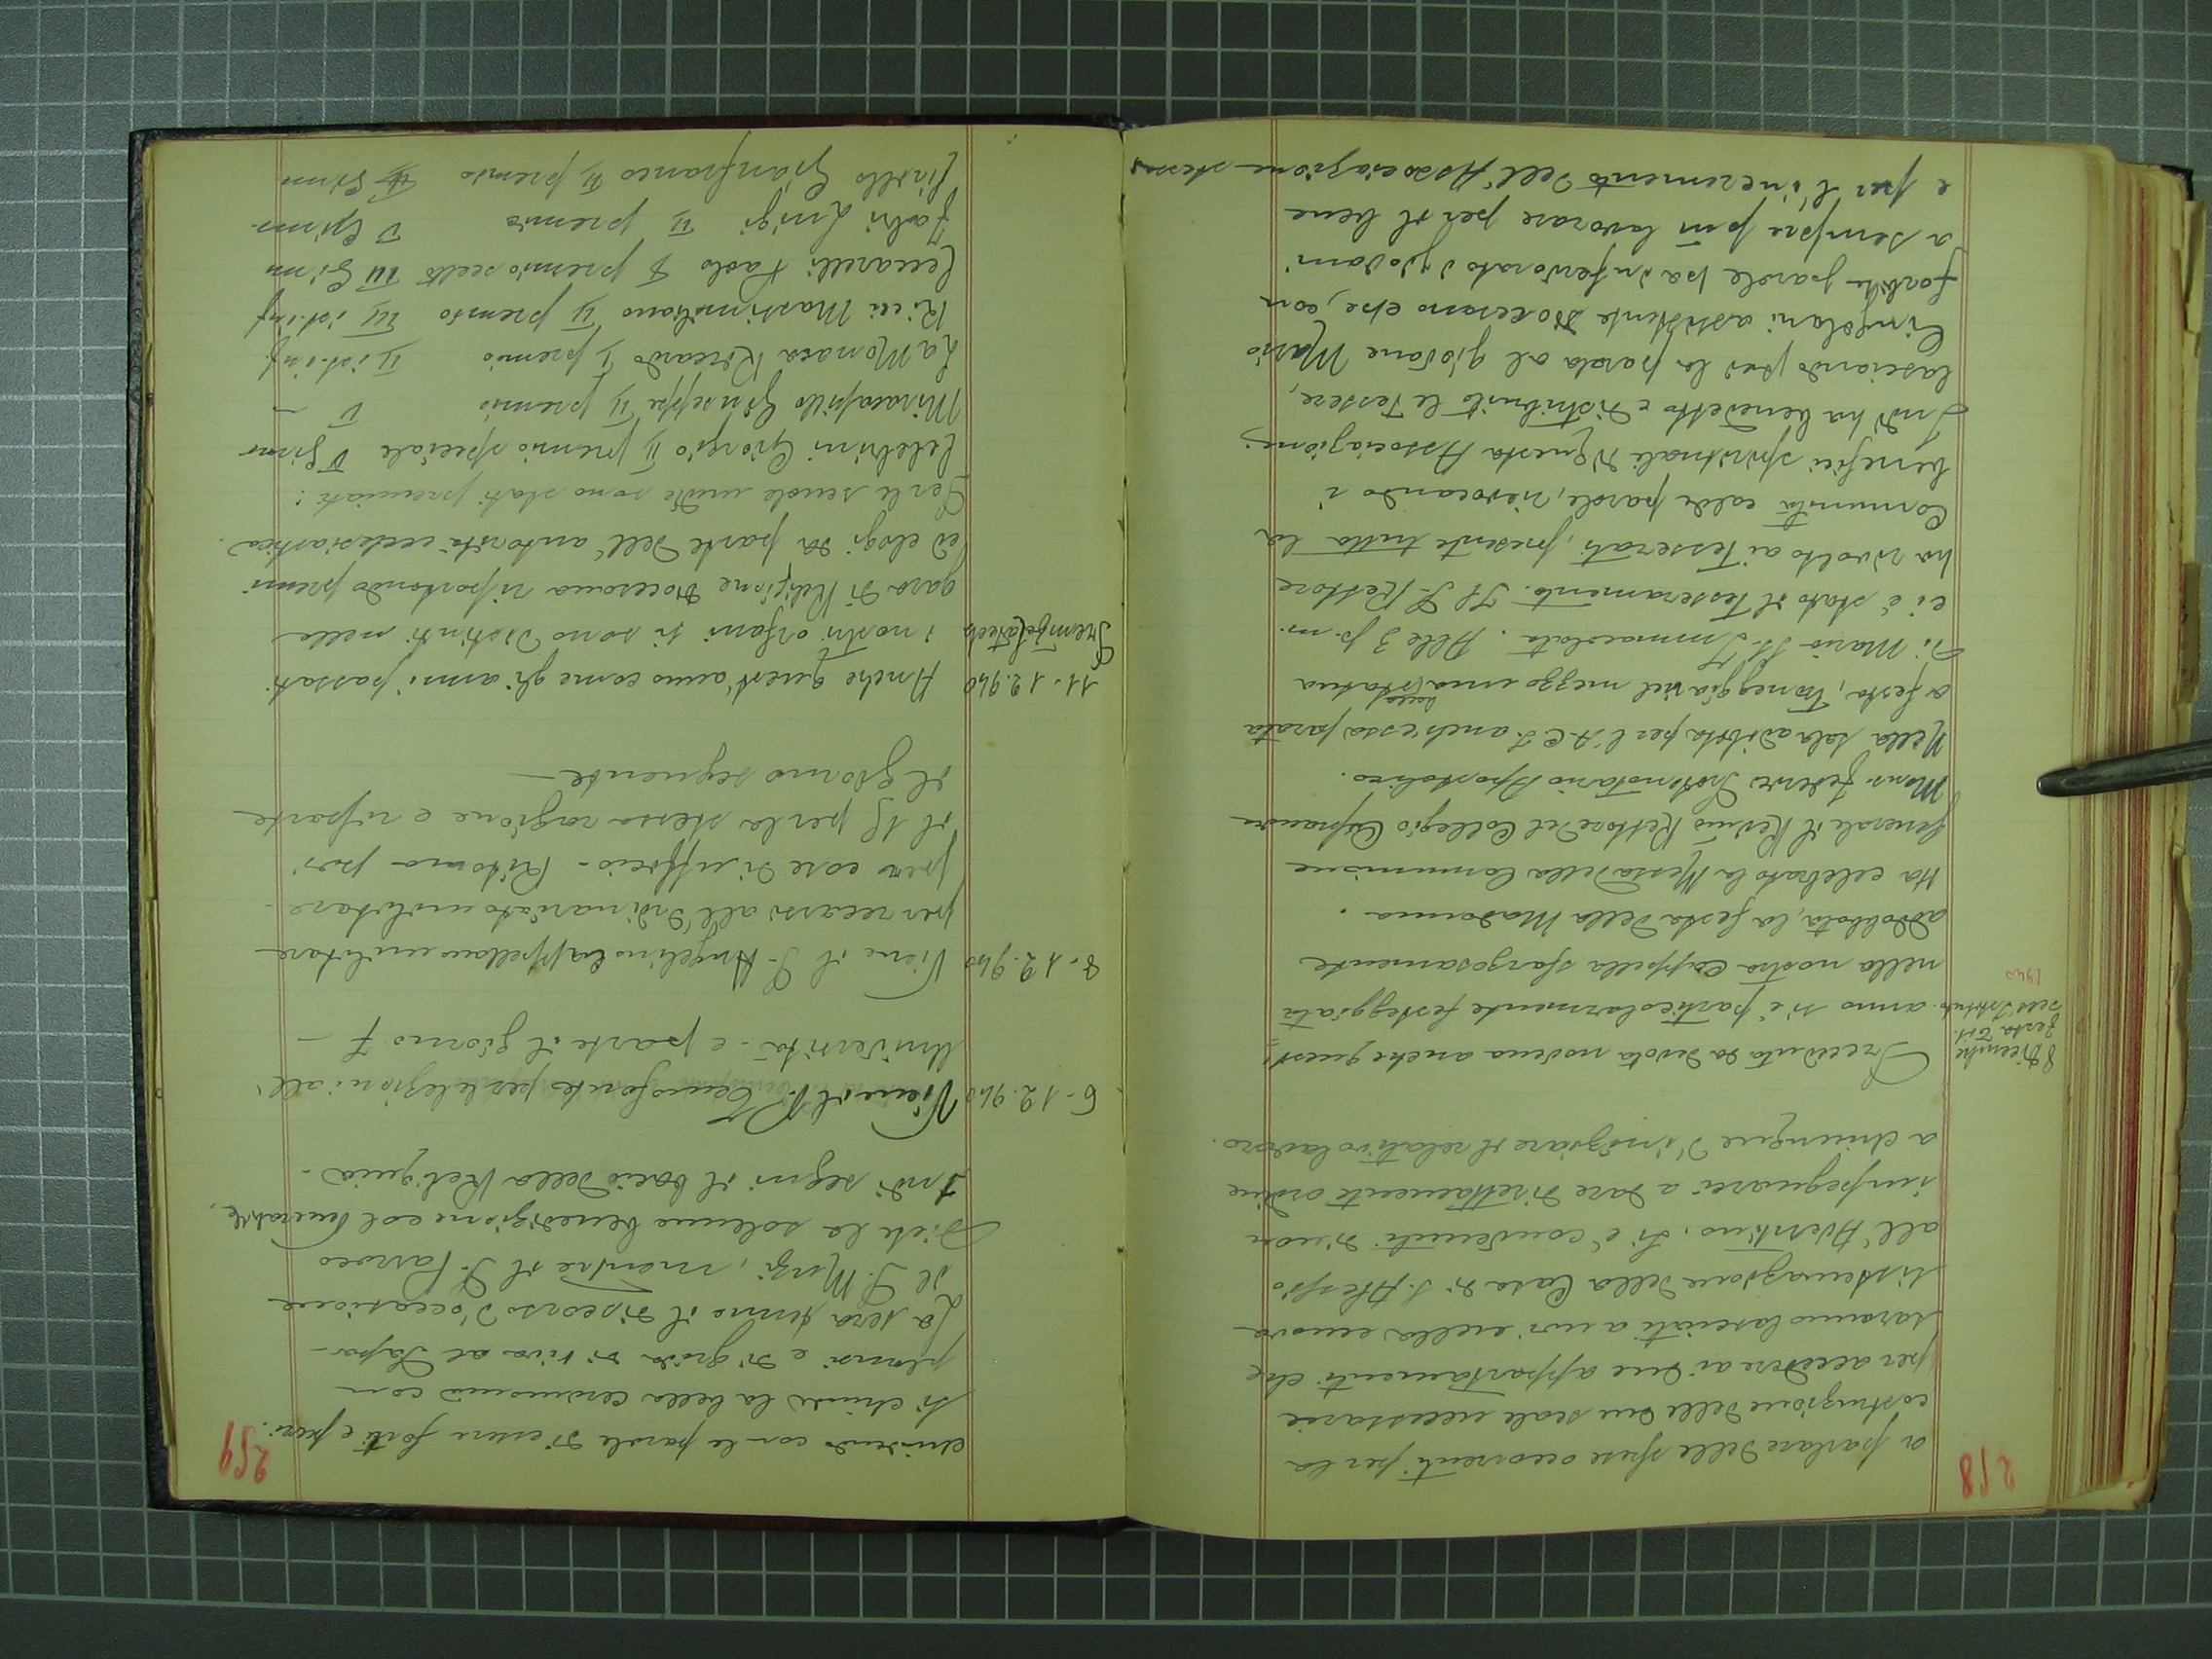 258
a parlare delle spese occorrenti per la
costruzione delle due scale necessarie
per accedere ai due appartamenti che
saranno lasciati a noi nella nuova
sistemazione della Casa di S. Alessio
all'Aventino. Si è convenuti di non
impegnarci a dare direttamente ordine
a chiunque d'iniziare il relativo lavoro.
8 Dicembre
festa Tit.
dell'Istituto.
1940
Preceduta da devota novena anche quest'
anno si è particolarmente festeggiata
nella nostra Cappella sfarzosamente
addobbata, la festa della Madonna.
Ha celebrato la Messa della Comunione
generale il Rev.mo Rettore del Collegio Capranica
Mons. Federici Protonotario Apostolico.
Nella sala adibita per l'A.C.I. anch'essa parata
a festa, troneggia nel mezzo una bella statua
di Maria SS. Immacolata. Alle 3 p.m.
ci è stato il Tesseramento. Il P. Rettore
ha rivolto ai Tesserati, presente tutta la
Comunità calde parole, rievocando i
benefici spirituali di questa Associazione;
Indi ha benedetto e distribuito le Tessere,
lasciando poi la parola al giovane Mario
Cingolani assistente diocesano che, con
forbite parole ha infervorato i giovani
a sempre più lavorare per il bene
e per l'incremento dell'Associazione stessa
259
chiudendo con le parole d'essere forti e puri.
Si chiude la bella cerimonia con
plausi e di grida di viva al Papa-
La sera tenne il discorso d'occasione
il P. Muzi, mentre il P. Parroco
diede la solenne benedizione col Venerabile.
Indi seguì il bacio della Reliquia-
6-12.940 Viene il P. Temofonte per le lezioni all'
Università - e parte il giorno 7 -
8-12.940 Viene il P. Angelino Cappellano militare
per recarsi all'Ordinariato militare
per cose di ufficio - Ritorna poi
il 15 per la stessa ragione e riparte
il giorno seguente -
11-12.940 Anche quest'anno come gli anni passati
Premi Catech. i nostri orfani si sono distinti nella
gara di Religione diocesana riportando premi
ed elogi da parte dell'autorità ecclesiastica.
Per le scuole medie sono stati premiati:
Celebrini Giorgio II premio speciale V Ginn
Miracapillo Giuseppe II premio V -
La Monaca Riccardo I premio II ist. inf.
Ricci Massimiliano II premio III ist. inf
Ceccarelli Paolo I premio scelto III Ginn
Fabri Luigi II premio V Ginn.
Cirillo Gianfranco II premio II Ginn